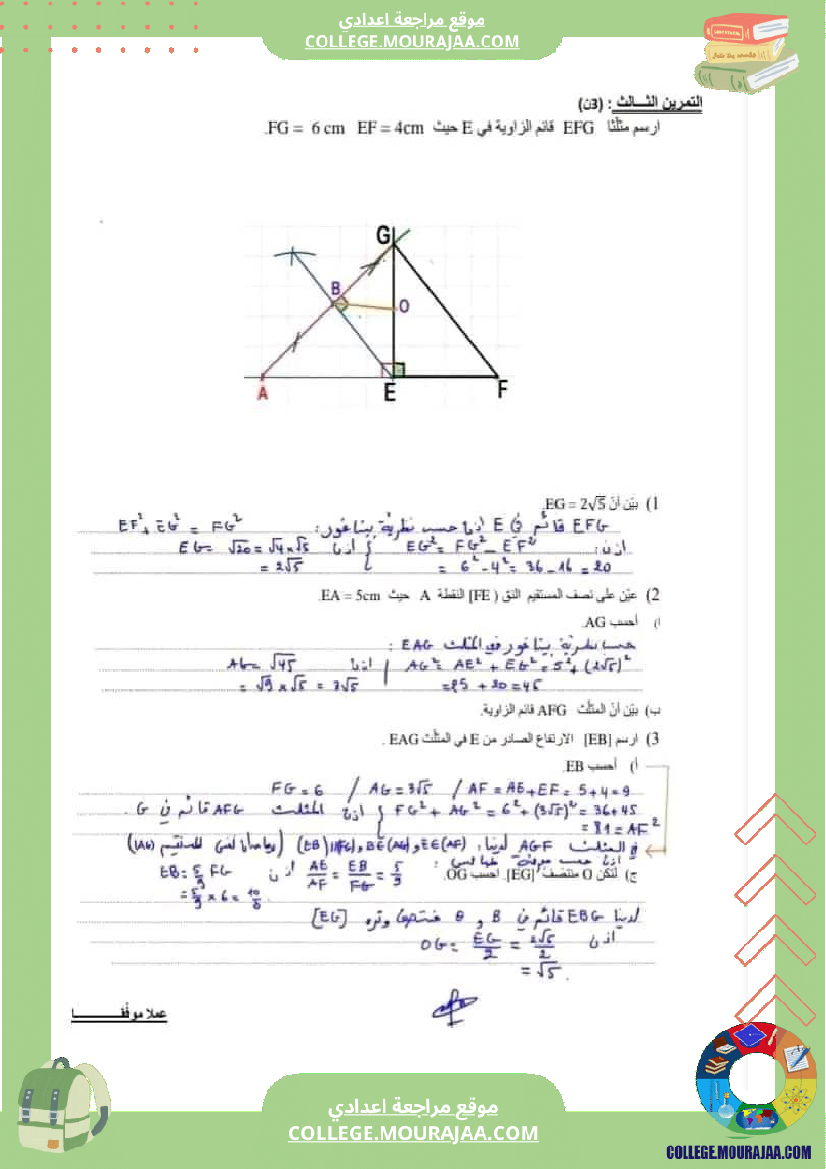 موقع مراجعة اعدادي
COLLEGE.MOURAJAA.COM
التمرين الثالث : (3ن)
ارسم مثلثا EFG قائم الزاوية في E حيث EF = 4cm FG = 6 cm.
G
B
O
A
E
F
1) بيّن أنّ EG = 2√5.
EFG قائم في E إذا حسب نظرية بيتاغور: EF² + EG² = FG²
إذن: EG² = FG² - EF² إذا EG = √20 = √4×√5
= 6² - 4² = 36 - 16 = 20 = 2√5
2) عيّن على نصف المستقيم الذي [FE) النقطة A حيث EA = 5cm.
أ) أحسب AG.
حسب نظرية بيتاغور في المثلث EAG :
AG² = AE² + EG² = 5² + (2√5)² إذا AG = √45
= 25 + 20 = 45 = √9 × √5 = 3√5
ب) بيّن أنّ المثلث AFG قائم الزاوية.
3) ارسم [EB] الارتفاع الصادر من E في المثلث EAG .
أ) أحسب EB.
FG = 6 / AG = 3√5 / AF = AE + EF = 5 + 4 = 9
FG² + AG² = 6² + (3√5)² = 36 + 45 إذن المثلث AFG قائم في G .
= 81 = AF²
في المثلث AGF لدينا: E∈(AF) و B∈(AG) و (EB)//(FG) (AG)
إذن حسب مبرهنة طاليس :
AE/AF = EB/FG = 5/9 إذن EB = 5/9 FG
ج) لتكن O منتصف [EG]. احسب OG.
= 5/9 × 6 =
لدينا EBG قائم في B و O منتصف وتره [EG]
إذن OG = EG/2 = 2√5/2
= √5 .
عملا موفقا
موقع مراجعة اعدادي
COLLEGE.MOURAJAA.COM
COLLEGE.MOURAJAA.COM